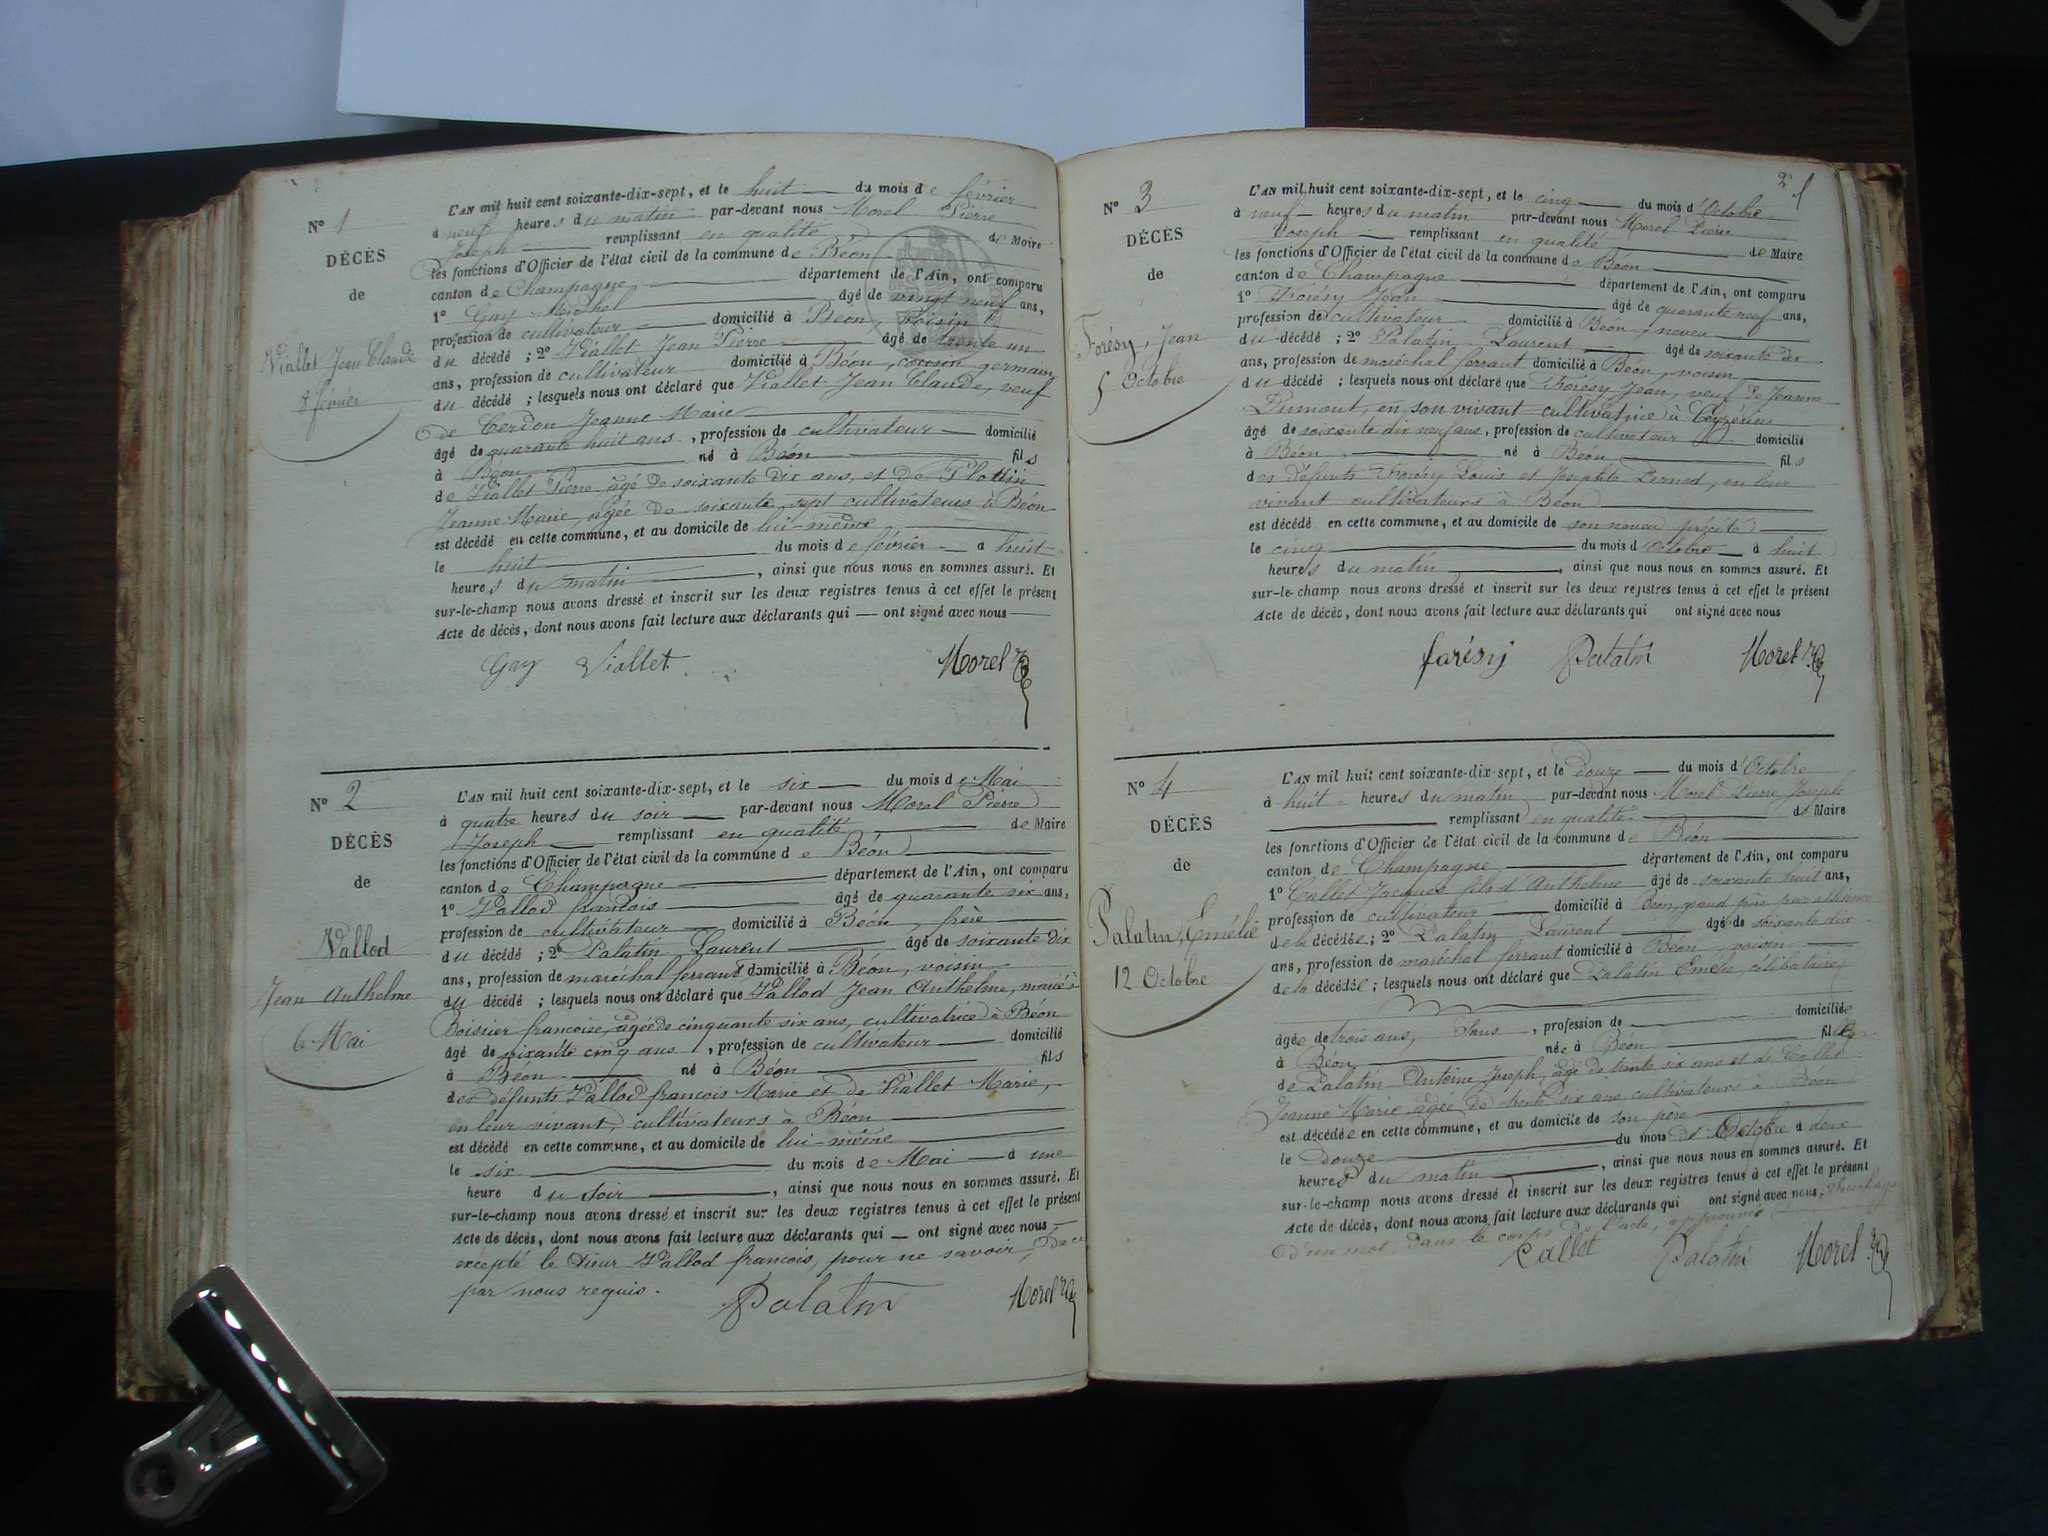 N° 1
DÉCÈS
de
Viallet Jean Claude
8 février
L'AN mil huit cent soixante-dix-sept, et le huit du mois de février
à neuf heures du matin par-devant nous Morel Pierre
Joseph remplissant en qualité de Maire
les fonctions d'Officier de l'état civil de la commune de Béon
canton de Champagne département de l'Ain, ont comparu
1° Gay Michel âgé de vingt neuf ans,
profession de cultivateur domicilié à Béon, voisin
du décédé ; 2° Viallet Jean Pierre âgé de trente un
ans, profession de cultivateur domicilié à Béon, cousin germain
du décédé ; lesquels nous ont déclaré que Viallet Jean Claude, veuf
de Cerdon Jeanne Marie
âgé de quarante huit ans, profession de cultivateur domicilié
à Béon né à Béon fils
de Viallet Pierre âgé de soixante dix ans, et de Plottin
Jeanne Marie, âgée de soixante sept cultivateurs à Béon
est décédé en cette commune, et au domicile de lui-même
le huit du mois de février à huit
heures du matin, ainsi que nous nous en sommes assuré. Et
sur-le-champ nous avons dressé et inscrit sur les deux registres tenus à cet effet le présent
Acte de décès, dont nous avons fait lecture aux déclarants qui ont signé avec nous
Gay Viallet Morel
N° 2
DÉCÈS
de
Vallod
Jean Anthelme
6 Mai
L'AN mil huit cent soixante-dix-sept, et le six du mois de Mai
à quatre heures du soir par-devant nous Morel Pierre
Joseph remplissant en qualité de Maire
les fonctions d'Officier de l'état civil de la commune de Béon
canton de Champagne département de l'Ain, ont comparu
1° Vallod françois âgé de quarante six ans,
profession de cultivateur domicilié à Béon, frère
du décédé ; 2° Palatin Laurent âgé de soixante dix
ans, profession de maréchal ferrant domicilié à Béon, voisin
du décédé ; lesquels nous ont déclaré que Vallod Jean Anthelme, marié à
Boissier françoise, âgée de cinquante six ans, cultivatrice à Béon
âgé de soixante cinq ans, profession de cultivateur domicilié
à Béon né à Béon fils
des défunts Vallod françois Marie et de Viallet Marie,
en leur vivant, cultivateurs à Béon
est décédé en cette commune, et au domicile de lui-même
le six du mois de Mai à une
heure du soir, ainsi que nous nous en sommes assuré. Et
sur-le-champ nous avons dressé et inscrit sur les deux registres tenus à cet effet le présent
Acte de décès, dont nous avons fait lecture aux déclarants qui ont signé avec nous
excepté le sieur Vallod françois, pour ne savoir, de ce
par nous requis.
Palatin Morel
2
N° 3
DÉCÈS
de
Forésy, Jean
5 Octobre
L'AN mil huit cent soixante-dix-sept, et le cinq du mois d'Octobre
à neuf heures du matin par-devant nous Morel Pierre
Joseph remplissant en qualité de Maire
les fonctions d'Officier de l'état civil de la commune de Béon
canton de Champagne département de l'Ain, ont comparu
1° Forésy Jean âgé de quarante neuf ans,
profession de cultivateur domicilié à Béon, neveu
du décédé ; 2° Palatin Laurent âgé de soixante dix
ans, profession de maréchal ferrant domicilié à Béon, voisin
du décédé ; lesquels nous ont déclaré que Forésy Jean, veuf de Jeanne
Dumont, en son vivant cultivatrice à Ceyzérieu
âgé de soixante dix neuf ans, profession de cultivateur domicilié
à Béon né à Béon fils
des défunts Forésy Louis et Josephte Pernod, en leur
vivant cultivateurs à Béon
est décédé en cette commune, et au domicile de son neveu précité
le cinq du mois d'Octobre à huit
heures du matin, ainsi que nous nous en sommes assuré. Et
sur-le-champ nous avons dressé et inscrit sur les deux registres tenus à cet effet le présent
Acte de décès, dont nous avons fait lecture aux déclarants qui ont signé avec nous
farésy Palatin Morel
N° 4
DÉCÈS
de
Palatin, Emélie
12 Octobre
L'AN mil huit cent soixante-dix-sept, et le douze du mois d'Octobre
à huit heures du matin par-devant nous Morel Pierre Joseph
remplissant en qualité de Maire
les fonctions d'Officier de l'état civil de la commune de Béon
canton de Champagne département de l'Ain, ont comparu
1° Collet Jacques fils d'Anthelme âgé de soixante huit ans,
profession de cultivateur domicilié à Béon, grand père par alliance
de la décédée ; 2° Palatin Laurent âgé de soixante dix
ans, profession de maréchal ferrant domicilié à Béon, voisin
de la décédée ; lesquels nous ont déclaré que Palatin Emélie, célibataire,
âgée de trois ans, Sans, profession de domiciliée
à Béon née à Béon fille
de Palatin Antoine Joseph, âgé de trente six ans et de Collet
Jeanne Marie âgée de trente six ans cultivateurs à Béon
est décédée en cette commune, et au domicile de son père
le douze du mois d'Octobre à deux
heures du matin, ainsi que nous nous en sommes assuré. Et
sur-le-champ nous avons dressé et inscrit sur les deux registres tenus à cet effet le présent
Acte de décès, dont nous avons fait lecture aux déclarants qui ont signé avec nous,
d'un mot, dans le corps de l'acte, approuvé
Collet Palatin Morel